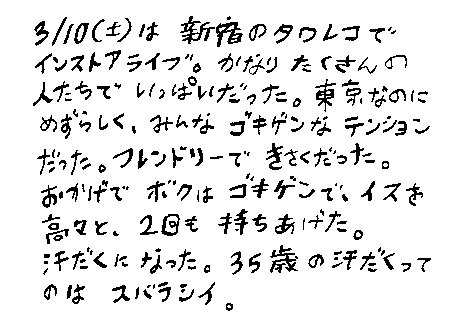 3/10(土)は 新宿のタワレコで
インストアライブ。かなり たくさんの
人たちで いっぱいだった。東京なのに
めずらしく、みんな ゴキゲンな テンション
だった。フレンドリーで きさくだった。
おかげで ボクは ゴキゲンで、イスを
高々と、2回も 持ちあげた。
汗だくに なった。35歳の汗だくって
のは スバラシイ。